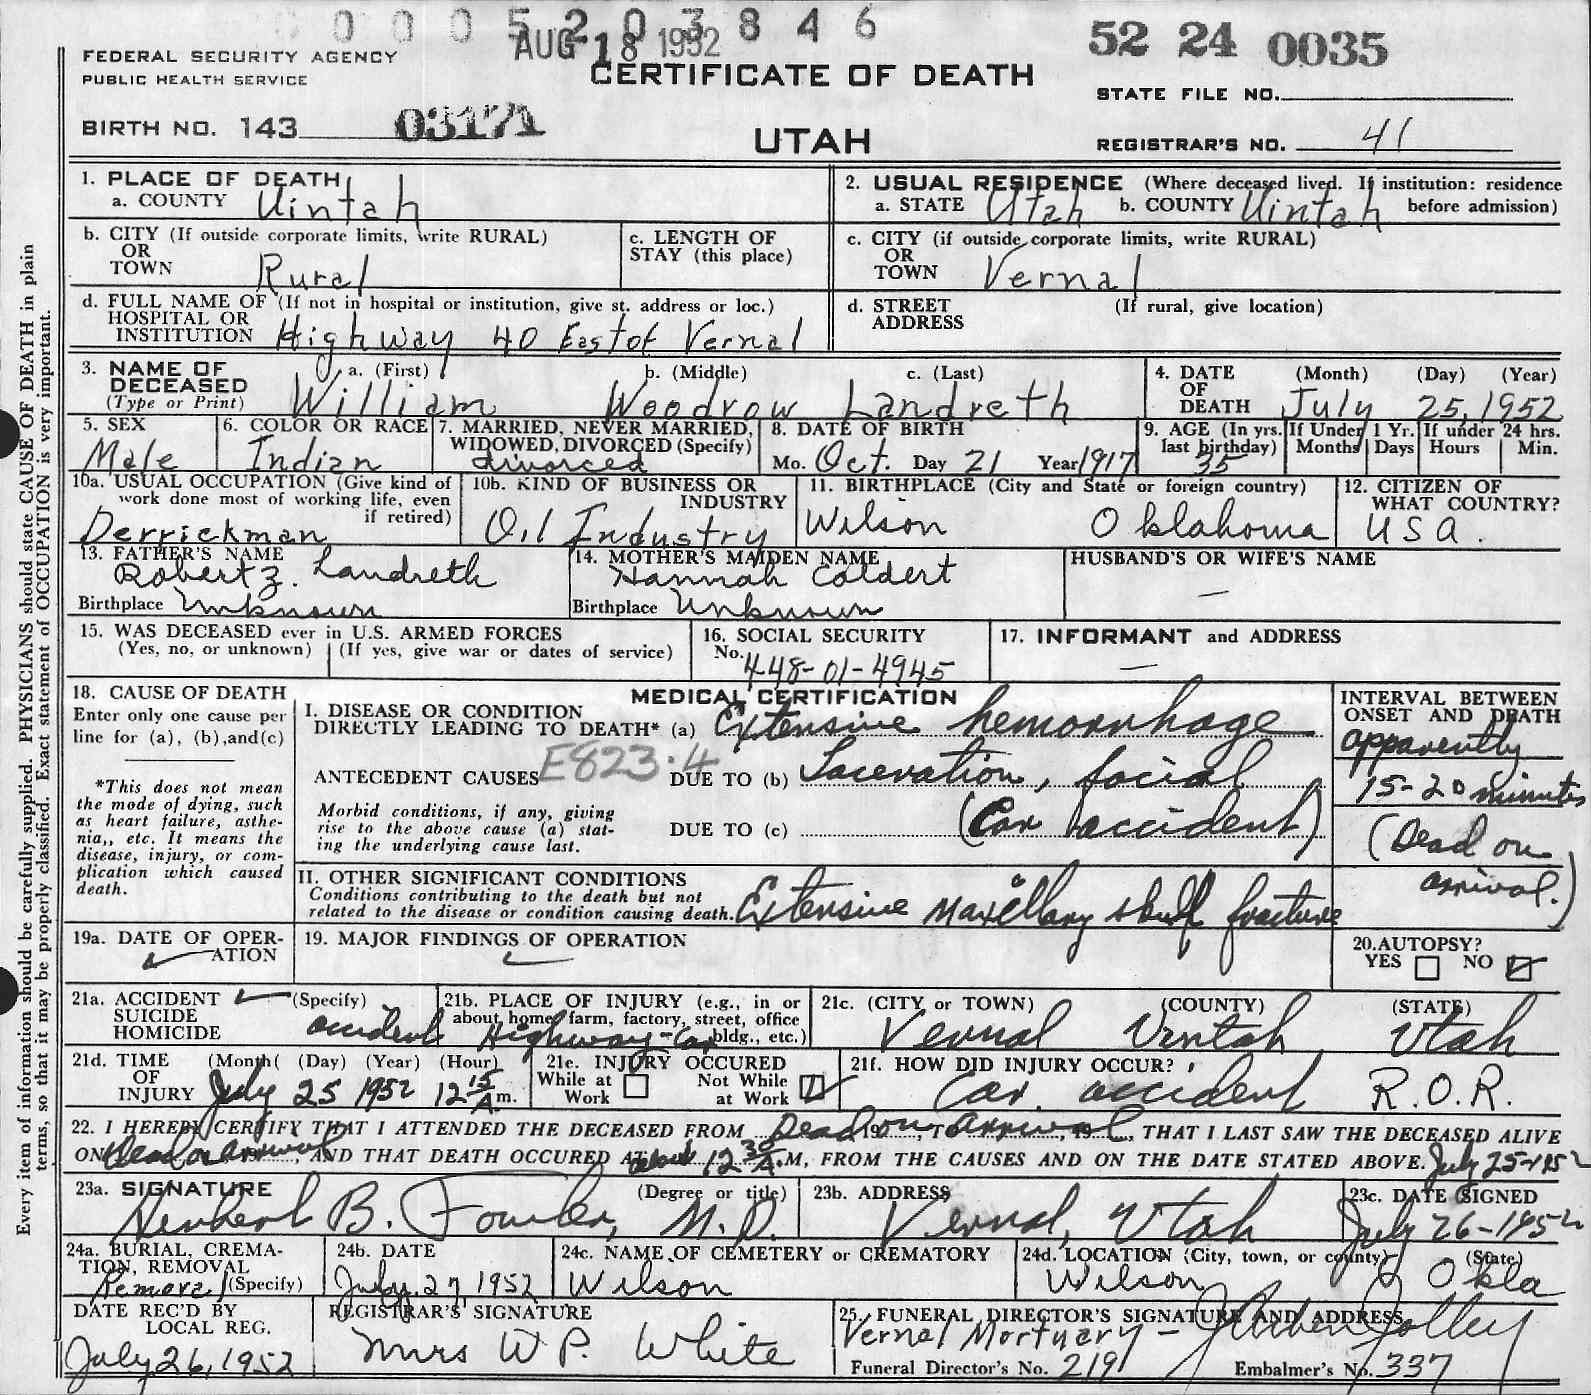 0 0 0 5 2 0 3 8 4 6
AUG 18 1952
52 24 0035
FEDERAL SECURITY AGENCY
PUBLIC HEALTH SERVICE
CERTIFICATE OF DEATH
STATE FILE NO.
BIRTH NO. 143 0317A
UTAH
REGISTRAR'S NO. 41
Every item of information should be carefully supplied. PHYSICIANS should state CAUSE OF DEATH in plain
terms, so that it may be properly classified. Exact statement of OCCUPATION is very important.
1. PLACE OF DEATH
a. COUNTY Uintah
2. USUAL RESIDENCE (Where deceased lived. If institution: residence
a. STATE Utah b. COUNTY Uintah before admission)
b. CITY (If outside corporate limits, write RURAL)
OR
TOWN Rural
c. LENGTH OF
STAY (this place)
c. CITY (if outside corporate limits, write RURAL)
OR
TOWN Vernal
d. FULL NAME OF (If not in hospital or institution, give st. address or loc.)
HOSPITAL OR
INSTITUTION Highway 40 East of Vernal
d. STREET (If rural, give location)
ADDRESS
3. NAME OF a. (First) b. (Middle) c. (Last)
DECEASED
(Type or Print) William Woodrow Landreth
4. DATE (Month) (Day) (Year)
OF
DEATH July 25, 1952
5. SEX
Male
6. COLOR OR RACE
Indian
7. MARRIED, NEVER MARRIED,
WIDOWED, DIVORCED (Specify)
divorced
8. DATE OF BIRTH
Mo. Oct. Day 21 Year 1917
9. AGE (In yrs.
last birthday)
35
If Under 1 Yr.
Months Days
If under 24 hrs.
Hours Min.
10a. USUAL OCCUPATION (Give kind of
work done most of working life, even
if retired)
Derrickman
10b. KIND OF BUSINESS OR
INDUSTRY
Oil Industry
11. BIRTHPLACE (City and State or foreign country)
Wilson Oklahoma
12. CITIZEN OF
WHAT COUNTRY?
USA.
13. FATHER'S NAME
Robert Z. Landreth
Birthplace Unknown
14. MOTHER'S MAIDEN NAME
Hannah Coldert
Birthplace Unknown
HUSBAND'S OR WIFE'S NAME
—
15. WAS DECEASED ever in U.S. ARMED FORCES
(Yes, no, or unknown) (If yes, give war or dates of service)
16. SOCIAL SECURITY
No. 448-01-4945
17. INFORMANT and ADDRESS
—
18. CAUSE OF DEATH
Enter only one cause per
line for (a), (b),and(c)
*This does not mean
the mode of dying, such
as heart failure, asthe-
nia,, etc. It means the
disease, injury, or com-
plication which caused
death.
MEDICAL CERTIFICATION
I. DISEASE OR CONDITION
DIRECTLY LEADING TO DEATH* (a) Extensive hemorrhage
E823.4
ANTECEDENT CAUSES DUE TO (b) Laceration, facial
Morbid conditions, if any, giving
rise to the above cause (a) stat-
ing the underlying cause last.
DUE TO (c) (Car accident)
II. OTHER SIGNIFICANT CONDITIONS
Conditions contributing to the death but not
related to the disease or condition causing death. Extensive maxillary skull fracture
INTERVAL BETWEEN
ONSET AND DEATH
apparently
15-20 minutes
(Dead on
arrival.)
19a. DATE OF OPER-
ATION
19. MAJOR FINDINGS OF OPERATION
20. AUTOPSY?
YES NO
21a. ACCIDENT (Specify)
SUICIDE
HOMICIDE accident
21b. PLACE OF INJURY (e.g., in or
about home, farm, factory, street, office
bldg., etc.)
Highway-Car
21c. (CITY or TOWN) (COUNTY) (STATE)
Vernal Uintah Utah
21d. TIME (Month( (Day) (Year) (Hour)
OF
INJURY July 25 1952 12 15 A m.
21e. INJURY OCCURED
While at Not While
Work at Work
21f. HOW DID INJURY OCCUR?
Car accident R.O.R.
22. I HEREBY CERTIFY THAT I ATTENDED THE DECEASED FROM Dead on arrival 19, TO, 19, THAT I LAST SAW THE DECEASED ALIVE
ON Dead on arrival 19, AND THAT DEATH OCCURED AT about 12 30 A.M, FROM THE CAUSES AND ON THE DATE STATED ABOVE. July 25-1952
23a. SIGNATURE (Degree or title)
Herbert B. Fowler, M.D.
23b. ADDRESS
Vernal, Utah
23c. DATE SIGNED
July 26-1952
24a. BURIAL, CREMA-
TION, REMOVAL
Removal (Specify)
24b. DATE
July 27, 1952
24c. NAME OF CEMETERY or CREMATORY
Wilson
24d. LOCATION (City, town, or county) (State)
Wilson Okla
DATE REC'D BY
LOCAL REG.
July 26, 1952
REGISTRAR'S SIGNATURE
Mrs W. P. White
25. FUNERAL DIRECTOR'S SIGNATURE AND ADDRESS
Vernal Mortuary - Jolley
Funeral Director's No. 219 Embalmer's No. 337